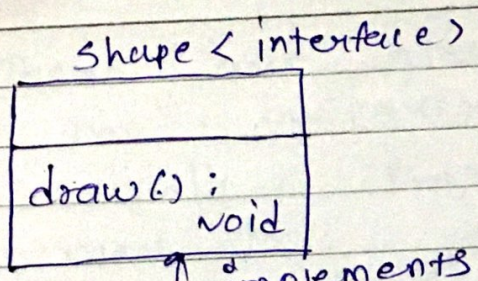 Shape < interface >
draw() :
void
implements